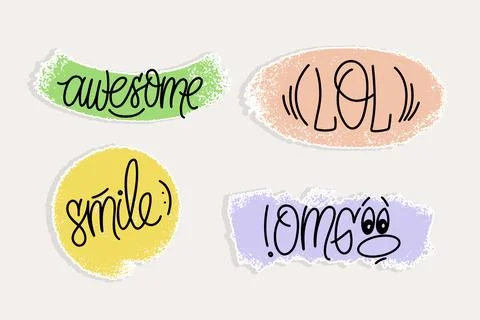 awesome
(LOL)
smile:)
!OMG